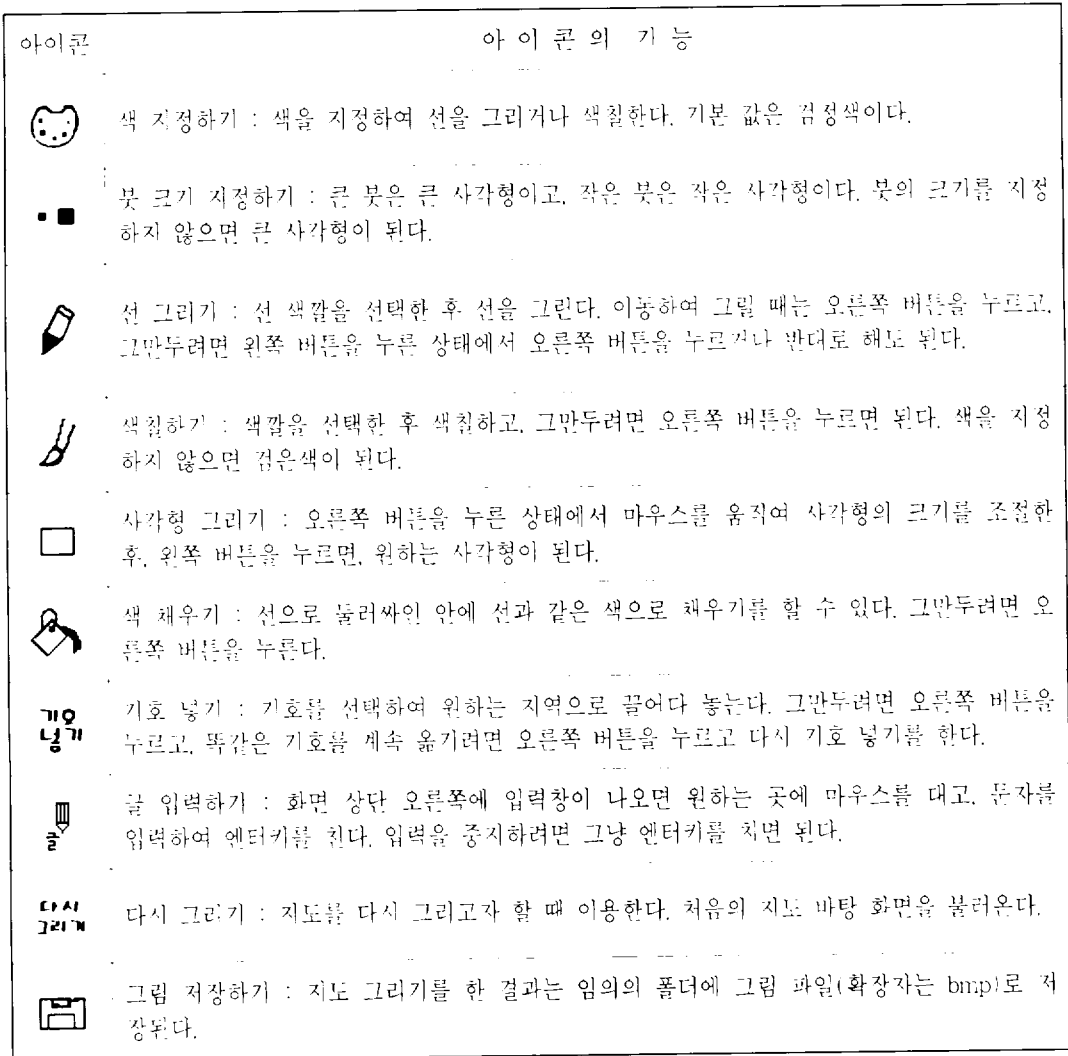 아이콘 아이콘의 기능
색 지정하기 : 색을 지정하여 선을 그리거나 색칠한다. 기본 값은 검정색이다.
붓 크기 지정하기 : 큰 붓은 큰 사각형이고, 작은 붓은 작은 사각형이다. 붓의 크기를 지정
하지 않으면 큰 사각형이 된다.
선 그리기 : 선 색깔을 선택한 후 선을 그린다. 이동하여 그릴 때는 오른쪽 버튼을 누르고,
그만두려면 왼쪽 버튼을 누른 상태에서 오른쪽 버튼을 누르거나 반대로 해도 된다.
색칠하기 : 색깔을 선택한 후 색칠하고, 그만두려면 오른쪽 버튼을 누르면 된다. 색을 지정
하지 않으면 검은색이 된다.
사각형 그리기 : 오른쪽 버튼을 누른 상태에서 마우스를 움직여 사각형의 크기를 조절한
후, 왼쪽 버튼을 누르면, 원하는 사각형이 된다.
색 채우기 : 선으로 둘러싸인 안에 선과 같은 색으로 채우기를 할 수 있다. 그만두려면 오
른쪽 버튼을 누른다.
기호
넣기
기호 넣기 : 기호를 선택하여 원하는 지역으로 끌어다 놓는다. 그만두려면 오른쪽 버튼을
누르고, 똑같은 기호를 계속 옮기려면 오른쪽 버튼을 누르고 다시 기호 넣기를 한다.
글
글 입력하기 : 화면 상단 오른쪽에 입력창이 나오면 원하는 곳에 마우스를 대고, 문자를
입력하여 엔터키를 친다. 입력을 중지하려면 그냥 엔터키를 치면 된다.
다시
그리기
다시 그리기 : 지도를 다시 그리고자 할 때 이용한다. 처음의 지도 바탕 화면을 불러온다.
그림 저장하기 : 지도 그리기를 한 결과는 임의의 폴더에 그림 파일(확장자는 bmp)로 저
장된다.